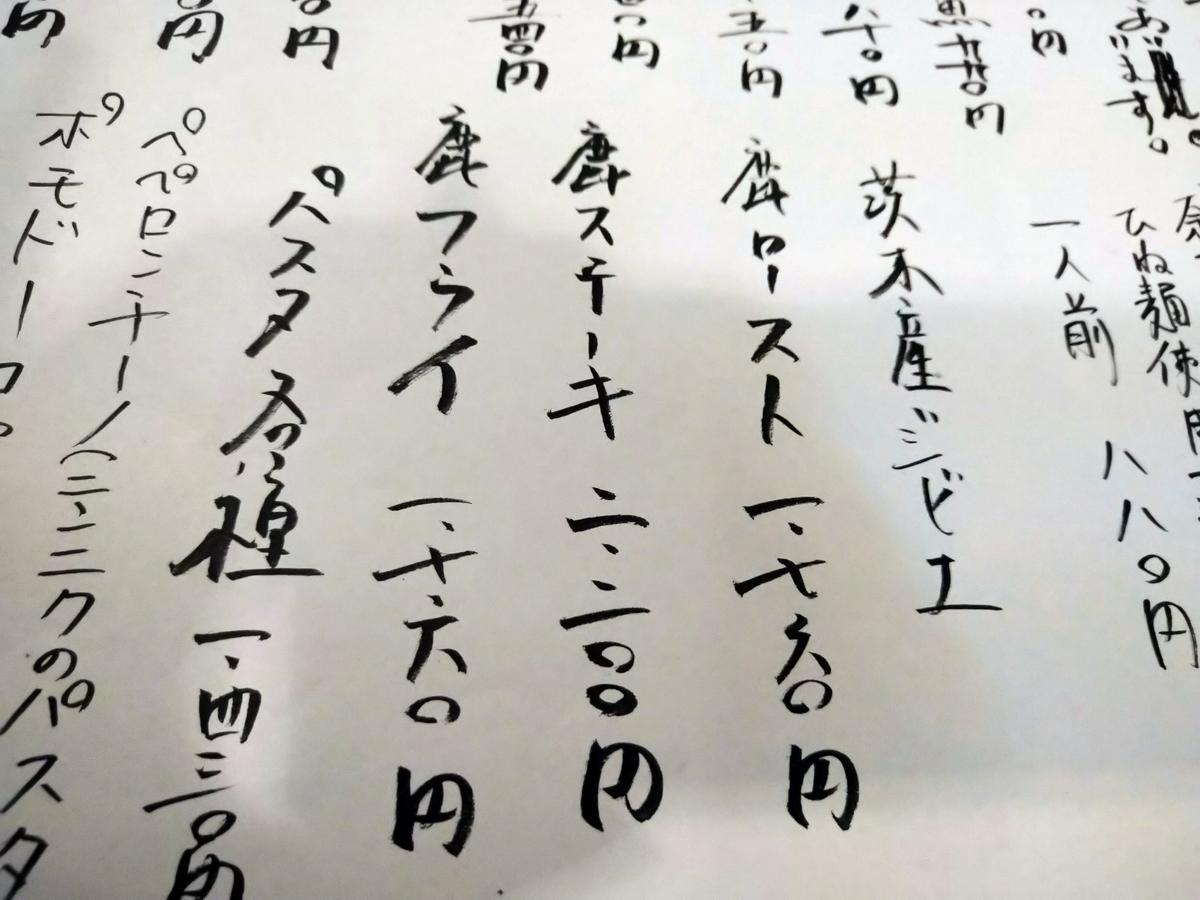 あります。
ひね麺使用
一人前 八八〇円
茨木産ジビエ
鹿ロースト 一、七六〇円
鹿ステーキ 二、二〇〇円
鹿フライ 一、七六〇円
パスタ各種 一、四三〇円
ペペロンチーノ(ニンニクのパスタ
ポモドーロ